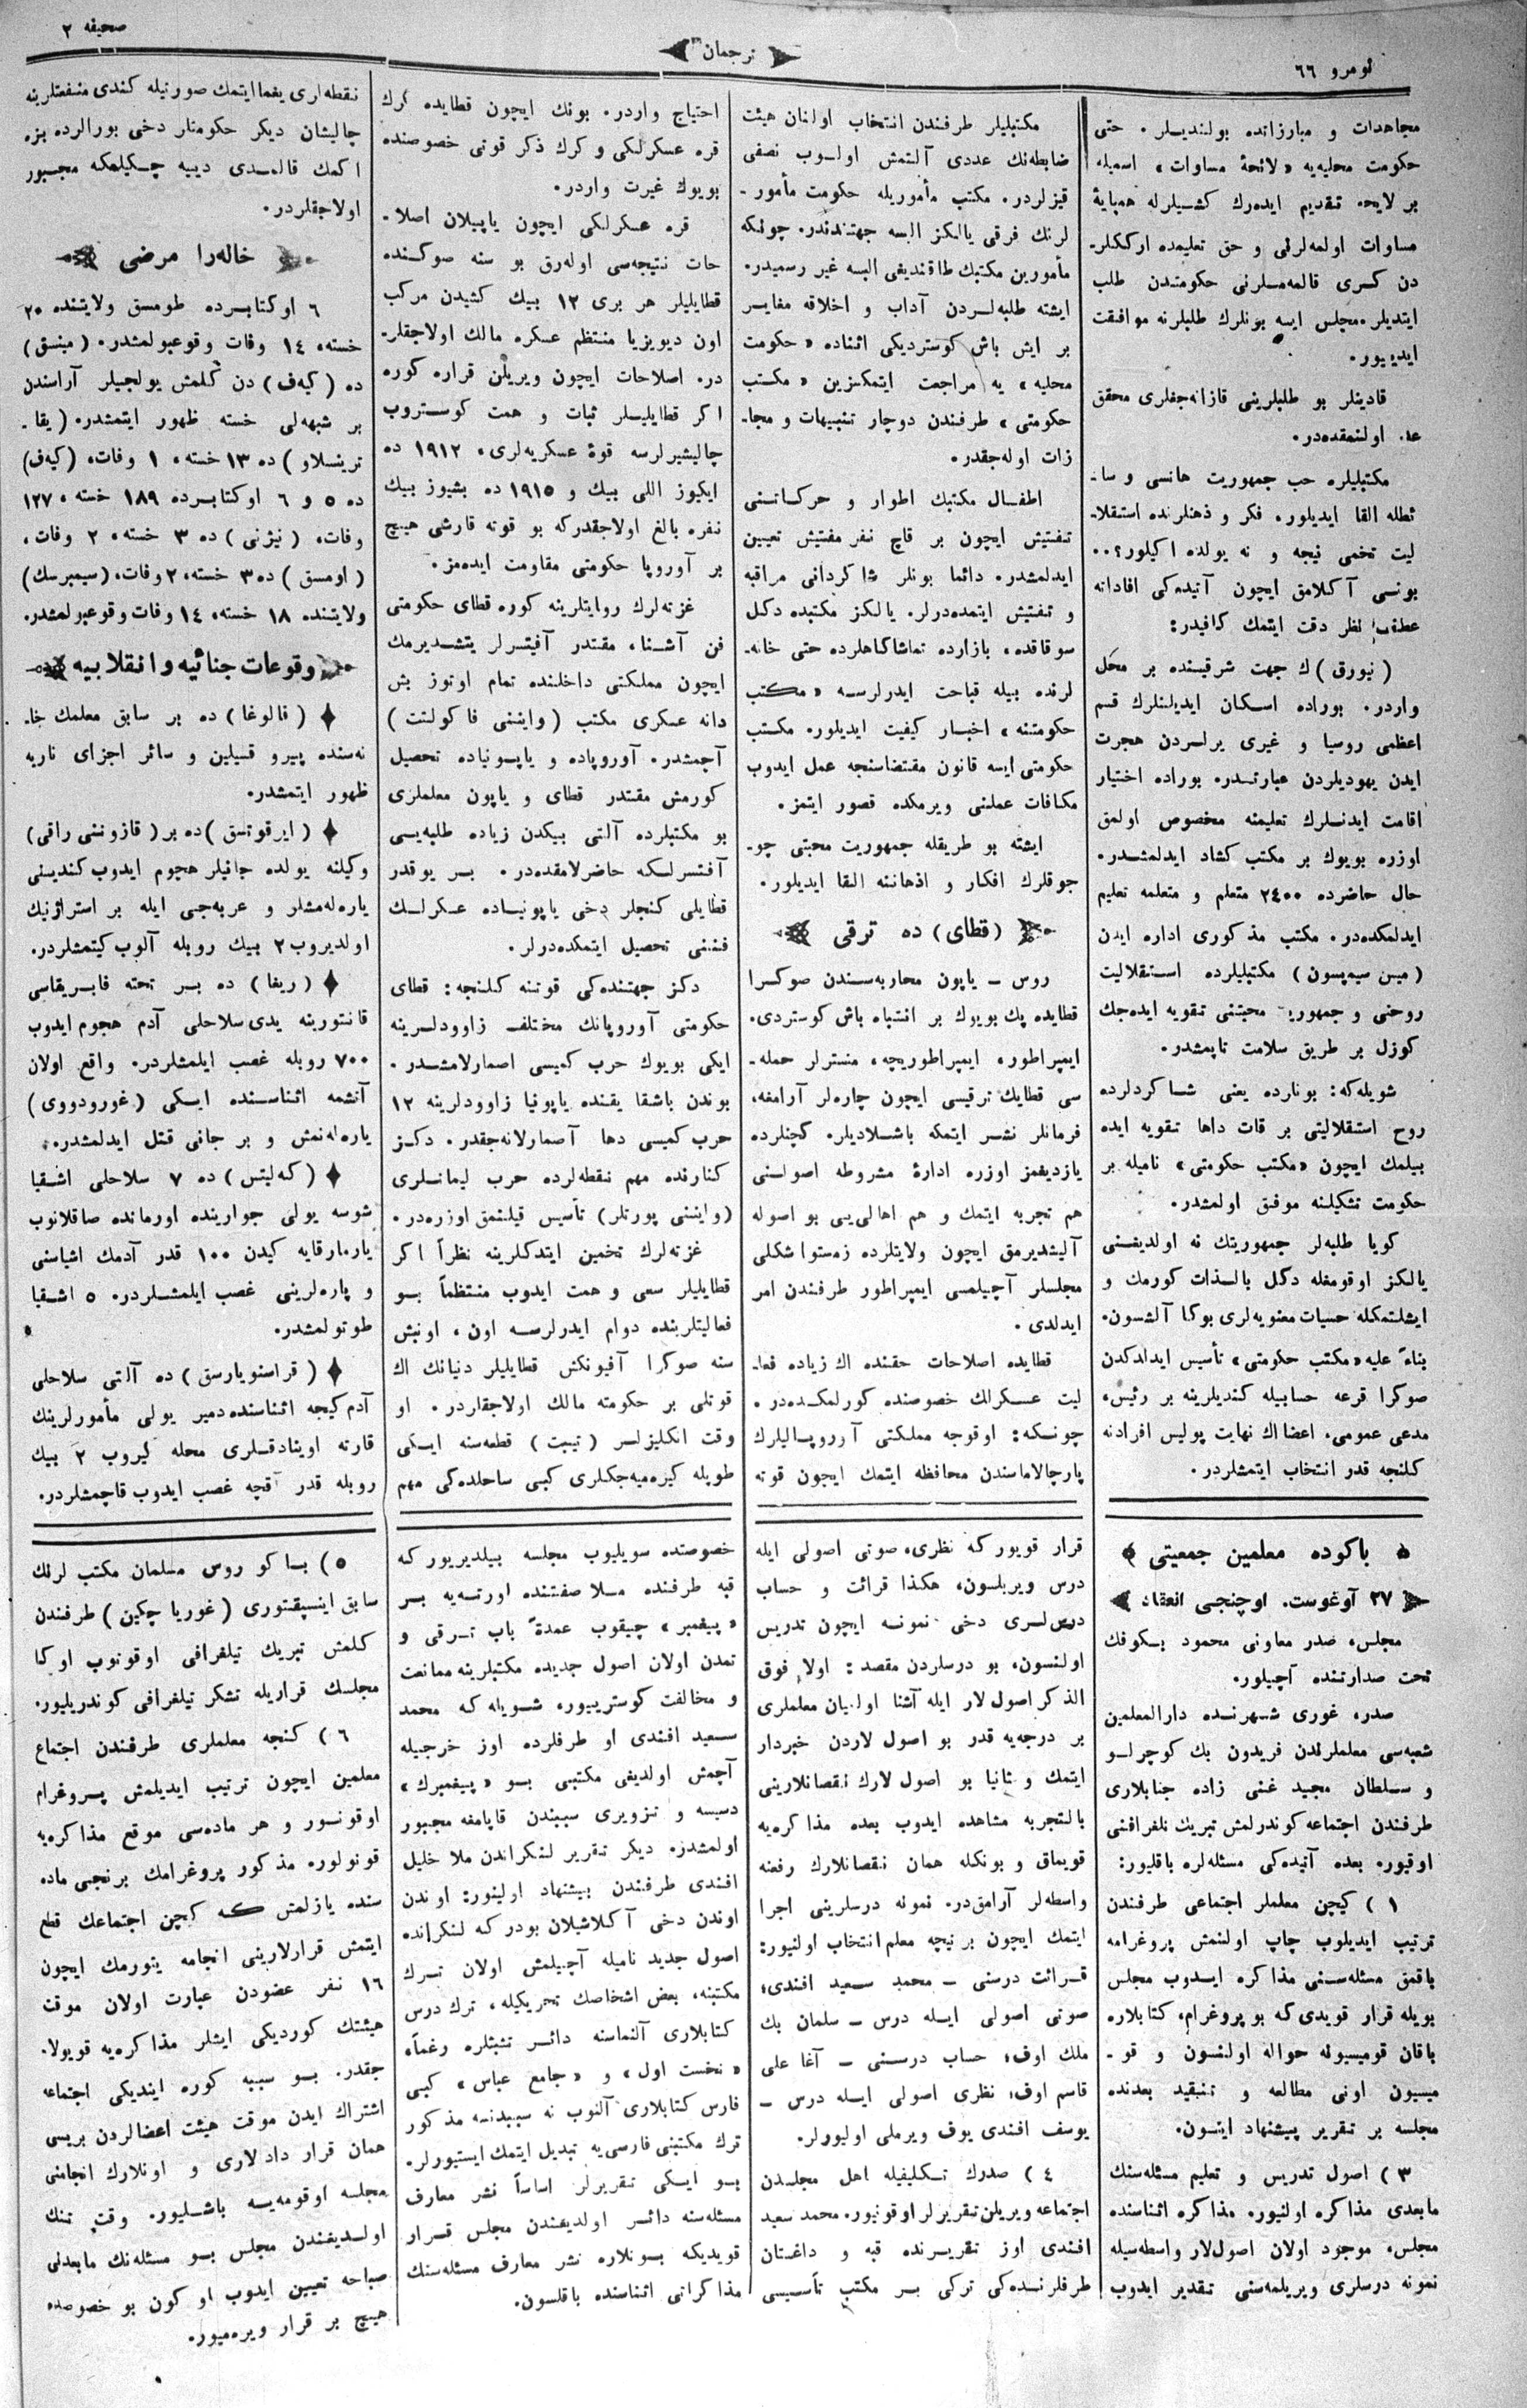 نومرو ٦٦
ترجمان
صحيفه ٢
مجاهدات و مبارزاتده بولنديلر. حتی
حكومت محليه‌يه «لائحهٔ مساوات» اسميله
بر لايحه تقديم ايده‌رك كشيلرله همپايهٔ
مساوات اولمه‌لرنی و حق تعليمده ارككلر-
دن كری قالمه‌مه‌لرنی حكومتدن طلب
ايتديلر. مجلس ايسه بونلرك طلبلرنه موافقت
ايدييور.
قادينلر بو طلبلرينی قازانه‌جقلری محقق
عد اولنمقده‌در.
مكتبليلره حب جمهوريت هانسی و سا-
ئطله القا ايديلور. فكر و ذهنلرنده استقلا-
ليت تخمی نيجه و نه يولده اكيلور؟..
بونی آكلامق ايچون آتيده‌كی افاداته
عطف نظر دقت ايتمك كافيدر:
(نيورق) ك جهت شرقيسنده بر محل
واردر. بوراده اسكان ايديلنلرك قسم
اعظمی روسيا و غيری يرلردن هجرت
ايدن يهوديلردن عبارتدر. بوراده اختيار
اقامت ايدنلرك تعليمنه مخصوص اولمق
اوزره بويوك بر مكتب كشاد ايدلمشدر.
حال حاضرده ٢٤٠٠ متعلم و متعلمه تعليم
ايدلمكده‌در. مكتب مذكوری اداره ايدن
(ميس سيمپسون) مكتبليلرده استقلاليت
روحنی و جمهوريت محبتنی تقويه ايده‌جك
كوزل بر طريق سلامت تاپمشدر.
شويله‌كه: بونارده يعنی شاكردلرده
روح استقلاليتی بر قات داها تقويه ايده
بيلمك ايچون «مكتب حكومتی» ناميله بر
حكومت تشكيلنه موفق اولمشدر.
كويا طلبه‌لر جمهوريتك نه اولديغنی
يالكز اوقومغله دكل بالذات كورمك و
ايشلتمكله حسيات معنويه‌لری بوكا آلشسون.
بناءً عليه «مكتب حكومتی» تأسيس ايدلدكدن
صوكرا قرعه حسابيله كنديلرينه بر رئيس،
مدعی عمومی، اعضالك نهايت پوليس افرادنه
كلنجه قدر انتخاب ايتمشلردر.
مكتبليلر طرفندن انتخاب اولنان هيئت
ضابطه‌نك عددی آلتمش اولوب نصفی
قيزلردر. مكتب مأموريله حكومت مأمور-
لرنك فرقی يالكز البسه جهتندندر. چونكه
مأمورين مكتبك طاقنديغی البسه غير رسميدر.
ايشته طلبه‌لردن آداب و اخلاقه مغاير
بر ايش باش كوسترديكی اثناده «حكومت
محليه» يه مراجعت ايتمكسزين «مكتب
حكومتی» طرفندن دوچار تنبيهات و مجا-
زات اوله‌جقدر.
اطفال مكتبك اطوار و حركاتنی
تفتيش ايچون بر قاچ نفر مفتيش تعيين
ايدلمشدر. دائما بونلر شاكردانی مراقبه
و تفتيش ايتمده‌درلر. يالكز مكتبده دكل
سوقاقده، بازارده تماشاكاهلرده حتی خانه-
لرنده بيله قباحت ايدرلرسه «مكتب
حكومتنه» اخبار كيفيت ايديلور. مكتب
حكومتی ايسه قانون مقتضاسنجه عمل ايدوب
مكافات عملنی ويرمكده قصور ايتمز.
ايشته بو طريقله جمهوريت محبتی چو-
جوقلرك افكار و اذهاننه القا ايديلور.
(قطای) ده ترقی
روس - ياپون محاربه‌سندن صوكرا
قطايده پك بويوك بر انتباه باش كوستردی.
ايمپراطور، ايمپراطوريچه، منسترلر حمله-
سی قطايك ترقيسی ايچون چاره‌لر آرامغه،
فرمانلر نشر ايتمكه باشلاديلر. كچنلرده
يازديغمز اوزره ادارهٔ مشروطه اصولنی
هم تجربه ايتمك و هم اهالی‌يی بو اصوله
آليشديرمق ايچون ولايتلرده زمستوا شكلی
مجلسلر آچيلمسی ايمپراطور طرفندن امر
ايدلدی.
قطايده اصلاحات حقنده اك زياده فعا-
ليت عسكرلك خصوصنده كورلمكده‌در.
چونكه: اوقوجه مملكتی آوروپاليلرك
پارچالاماسندن محافظه ايتمك ايچون قوته
احتياج واردر. بونك ايچون قطايده كرك
قره عسكرلكی و كرك ذكر قوتی خصوصنده
بويوك غيرت واردر.
قره عسكرلكی ايچون ياپيلان اصلا-
حات نتيجه‌سی اوله‌رق بو سنه صوكنده
قطايليلر هر بری ١٢ بيك كشيدن مركب
اون ديويزيا منتظم عسكره مالك اولاجقلر-
در. اصلاحات ايچون ويريلن قراره كوره
اكر قطايليلر ثبات و همت كوستروب
چاليشيرلرسه قوهٔ عسكريه‌لری، ١٩١٢ ده
ايكيوز اللی بيك و ١٩١٥ ده بشيوز بيك
نفره بالغ اولاجقدركه بو قوته قارشی هيچ
بر آوروپا حكومتی مقاومت ايده‌مز.
غزته‌لرك روايتلرينه كوره قطای حكومتی
فن آشنا، مقتدر آفيتسرلر يتشديرمك
ايچون مملكتی داخلنده تمام اوتوز بش
دانه عسكری مكتب (واينی فاكولتت)
آچمشدر. آوروپاده و ياپونياده تحصيل
كورمش مقتدر قطای و ياپون معلملری
بو مكتبلرده آلتی بيكدن زياده طلبه‌يی
آفتسرلكه حاضرلامقده‌در. بر يوقدر
قطايلی كنجلر دخی ياپونياده عسكرلك
فننی تحصيل ايتمكده‌درلر.
دكز جهتنده‌كی قوتنه كلنجه: قطای
حكومتی آوروپانك مختلف زاوودلرينه
ايكی بويوك حرب كميسی اصمارلامشدر.
بوندن باشقا يقنده ياپونيا زاوودلرينه ١٢
حرب كميسی دها آصمارلانه‌جقدر. دكز
كنارنده مهم نقطه‌لرده حرب ليمانلری
(واينی پورتلر) تأسيس قيلنمق اوزره‌در.
غزته‌لرك تخمين ايتدكلرينه نظراً اكر
قطايليلر سعی و همت ايدوب منتظماً بو
فعاليتلرينده دوام ايدرلرسه اون، اونبش
سنه صوكرا آفيونكش قطايليلر دنيانك اك
قوتلی بر حكومته مالك اولاجقلردر. او
وقت انكليزلر (تيبت) قطعه‌سنه ايكی
طوپله كيره‌ميه‌جكلری كبی ساحلده‌كی مهم
نقطه‌لری يغما ايتمك صورتيله كندی منفعتلرينه
چاليشان ديكر حكومتلر دخی بورالرده بزه
اكمك قالمدی دييه چكيلمكه مجبور
اولاجقلردر.
خاله‌را مرضی
٦ اوكتابرده طومسق ولايتنده ٢٥
خسته، ١٤ وفات وقوعبولمشدر. (مينسق)
ده (كيه‌ف) دن كلمش يولجيلر آراسندن
بر شبهه‌لی خسته ظهور ايتمشدر. (يقا-
ترينسلاو) ده ١٣ خسته، ١ وفات، (كيه‌ف)
ده ٥ و ٦ اوكتابرده ١٨٩ خسته، ١٢٧
وفات، (نيژنی) ده ٣ خسته، ٢ وفات،
(اومسق) ده ٣ خسته، ٢ وفات، (سيمبرسك)
ولايتنده ١٨ خسته، ١٤ وفات وقوعبولمشدر.
وقوعات جنائيه و انقلابيه
(قالوغا) ده بر سابق معلمك خا-
نه‌سنده پيروقسيلين و سائر اجزای ناريه
ظهور ايتمشدر.
(ايرقوتسق) ده بر (قازوننی راقی)
وكيلنه يولده جانيلر هجوم ايدوب كنديسنی
ياره‌له‌مشلر و عربه‌جی ايله بر استراژنيك
اولديروب ٢ بيك روبله آلوب كيتمشلردر.
(ريغا) ده بر تخته فابريقاسی
قانتورينه يدی سلاحلی آدم هجوم ايدوب
٧٠٠ روبله غصب ايلمشلردر. واقع اولان
آتشمه اثناسنده ايكی (غورودووی)
ياره‌له‌نمش و بر جانی قتل ايدلمشدر.
(كه‌ليتس) ده ٧ سلاحلی اشقيا
شوسه يولی جوارينده اورمانده صاقلانوب
يارمارقايه كيدن ١٠٠ قدر آدمك اشياسنی
و پاره‌لرينی غصب ايلمشلردر. ٥ اشقيا
طوتولمشدر.
(قراسنويارسق) ده آلتی سلاحلی
آدم كيجه اثناسنده دمير يولی مأمورلرينك
قارته اوينادقلری محله كيروب ٢ بيك
روبله قدر آقچه غصب ايدوب قاچمشلردر.
باكوده معلمين جمعيتی
٢٧ آوغوست. اوچنجی انعقاد
مجلس، صدر معاونی محمود بكوفك
تحت صدارتنده آچيلور.
صدر، غوری شهرنده دارالمعلمين
شعبه‌سی معلملرندن فريدون بك كوچرلو
و سلطان مجيد غنی زاده جنابلاری
طرفندن اجتماعه كوندرلمش تبريك تلغرافنی
اوقيور. بعده آتيده‌كی مسئله‌لره باقليور:
١) كچن معلملر اجتماعی طرفندن
ترتيب ايديلوب چاپ اولنمش پروغرامه
باقمق مسئله‌سنی مذاكره ايدوب مجلس
بويله قرار قويدی كه بو پروغرام، كتابلاره
باقان قوميسيونه حواله اولنسون و قو-
ميسيون اونی مطالعه و تنقيد بعدنده
مجلسه بر تقرير پيشنهاد ايتسون.
٣) اصول تدريس و تعليم مسئله‌سنك
مابعدی مذاكره اولنيور. مذاكره اثناسنده
مجلس، موجود اولان اصول‌لار واسطه‌سيله
نمونه درسلری ويريلمه‌سنی تقدير ايدوب
قرار قويور كه نظری، صوتی اصولی ايله
درس ويريلسون، هكذا قرائت و حساب
درسلری دخی نمونه ايچون تدريس
اولنسون. بو درسلردن مقصد: اولا فوق
الذكر اصول لار ايله آشنا اولميان معلملری
بر درجه‌يه قدر بو اصول لاردن خبردار
ايتمك و ثانيا بو اصول لارك نقصانلارينی
بالتجربه مشاهده ايدوب بعده مذاكره‌يه
قويماق و بونكله همان نقصانلارك رفعنه
واسطه‌لر آرامق‌در. نمونه درسلرينی اجرا
ايتمك ايچون بر نيچه معلم انتخاب اولنيور:
قرائت درسنی - محمد سعيد افندی؛
صوتی اصولی ايله درس - سلمان بك
ملك اوف؛ حساب درسنی - آغا علی
قاسم اوف؛ نظری اصولی ايله درس -
يوسف افندی يوف ويرملی اوليورلر.
٤) صدرك تكليفيله اهل مجلسدن
اجتماعه ويريلن تقريرلر اوقونيور. محمد سعيد
افندی اوز تقريرنده قبه و داغستان
طرفلرنده‌كی تركی بر مكتب تأسيسی
خصوصنده سويليوب مجلسه بيلديريور كه
قبه طرفنده ملا صفتنده اورتيه‌يه بر
«پيغمبر» چيقوب عمدةً باب ترقی و
تمدن اولان اصول جديده مكتبلرينه ممانعت
و مخالفت كوستريييور، شويله كه محمد
سعيد افندی او طرفلرده اوز خرجيله
آچمش اولديغی مكتبی بو «پيغمبرك»
دسيسه و تزويری سببندن قاپامغه مجبور
اولمشدر. ديكر تقرير لنكراندن ملا خليل
افندی طرفندن پيشنهاد اولنيور: اوندن
اوندن دخی آكلاشيلان بودر كه لنكرانده
اصول جديد ناميله آچيلمش اولان ترك
مكتبنه، بعض اشخاصك تحريكيله، ترك درس
كتابلاری آلنماسنه دائر تثبثلره رغماً،
«نخست اول» و «جامع عباس» كبی
فارس كتابلاری آلنوب نه سببدنسه مذكور
ترك مكتبنی فارسی‌يه تبديل ايتمك ايستيورلر.
بو ايكی تقريرلر اساساً نشر معارف
مسئله‌سنه دائر اولديغندن مجلس قرار
قويديكه بونلاره نشر معارف مسئله‌سنك
مذاكراتی اثناسنده باقلسون.
٥) باكو روس مسلمان مكتب لرنك
سابق اينسپقتوری (غوريا چكين) طرفندن
كلمش تبريك تيلغرافی اوقونوب اوكا
مجلسك قراريله تشكر تيلغرافی كوندريليور.
٦) كنجه معلملری طرفندن اجتماع
معلمين ايچون ترتيب ايديلمش پروغرام
اوقونسور و هر ماده‌سی موقع مذاكره‌يه
قونولور. مذكور پروغرامك برنجی ماده
سنده يازلمش كه كچن اجتماعك قطع
ايتمش قرارلارينی انجامه يتورمك ايچون
١٦ نفر عضودن عبارت اولان موقت
هيئتك كورديكی ايشلر مذاكره‌يه قويولا-
جقدر. بو سببه كوره ايندیكی اجتماعه
اشتراك ايدن موقت هيئت اعضالردن بريسی
همان قرار دادلاری و اونلارك انجامنی
مجلسه اوقومه‌يسه باشليور. وقت تنك
اولديغندن مجلس بو مسئله‌نك مابعدنی
صباحه تعيين ايدوب او كون بو خصوصده
هيچ بر قرار ويره‌ميور.